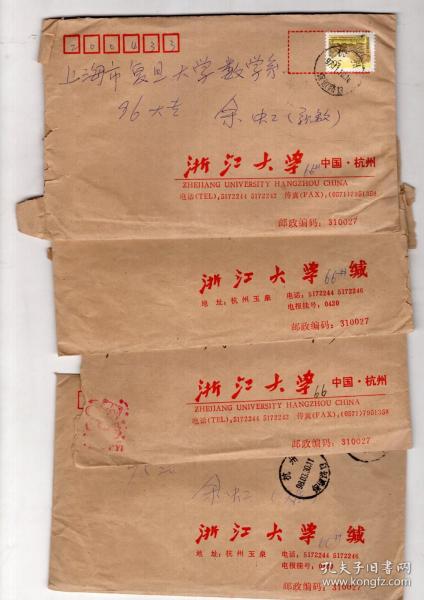 200433
上海市复旦大学数学系
96大专
余虹(新敏)
浙江大学 66# 中国·杭州
ZHEJIANG UNIVERSITY HANGZHOU CHINA
电话(TEL),5172244 5172242 传真(FAX),(0571)7951358
邮政编码: 310027
浙江大学 66# 缄
地址: 杭州玉泉 电话: 5172244 5172246
电报挂号: 0420
邮政编码: 310027
浙江大学 66 中国·杭州
ZHEJIANG UNIVERSITY HANGZHOU CHINA
电话(TEL),5172244 5172242 传真(FAX),(0571)7951358
邮政编码: 310027
余虹
浙江大学 缄
地址: 杭州玉泉 电话: 5172244 5172246
电报挂号:
邮政编码: 310027
孔夫子旧书网
kongfz.com